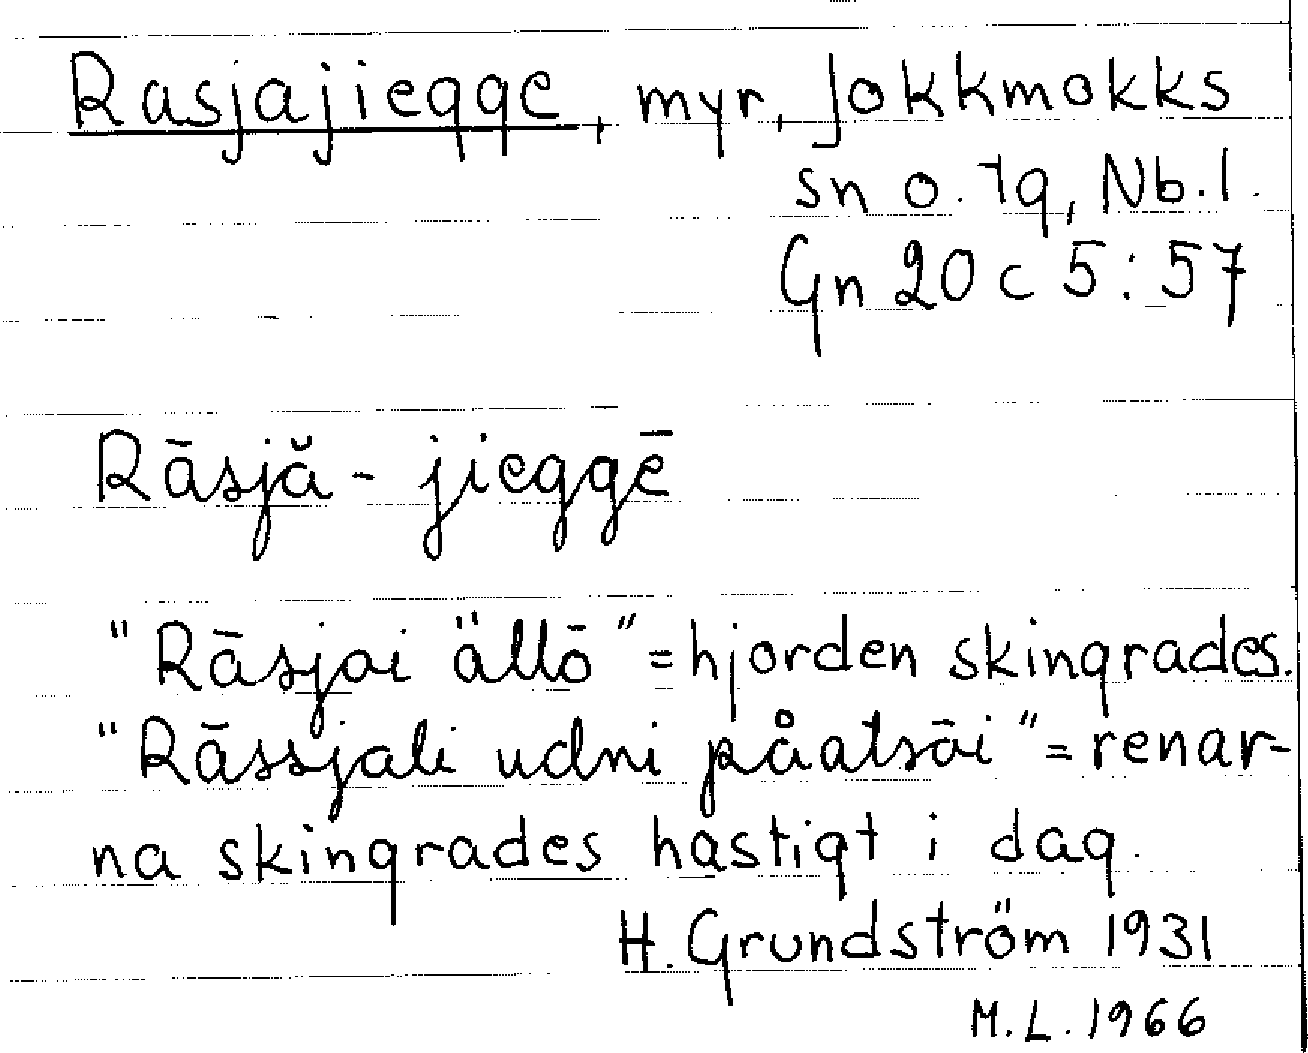 Rasjajiegge, myr, Jokkmokks
sn o. tg, Nb. l.
Gn 20 c 5:57
Rāsjă - jieggē
"Rāsjai ällō" = hjorden skingrades.
"Rāssjali udni påatsāi" = renar-
na skingrades hastigt i dag.
H. Grundström 1931
M. L. 1966